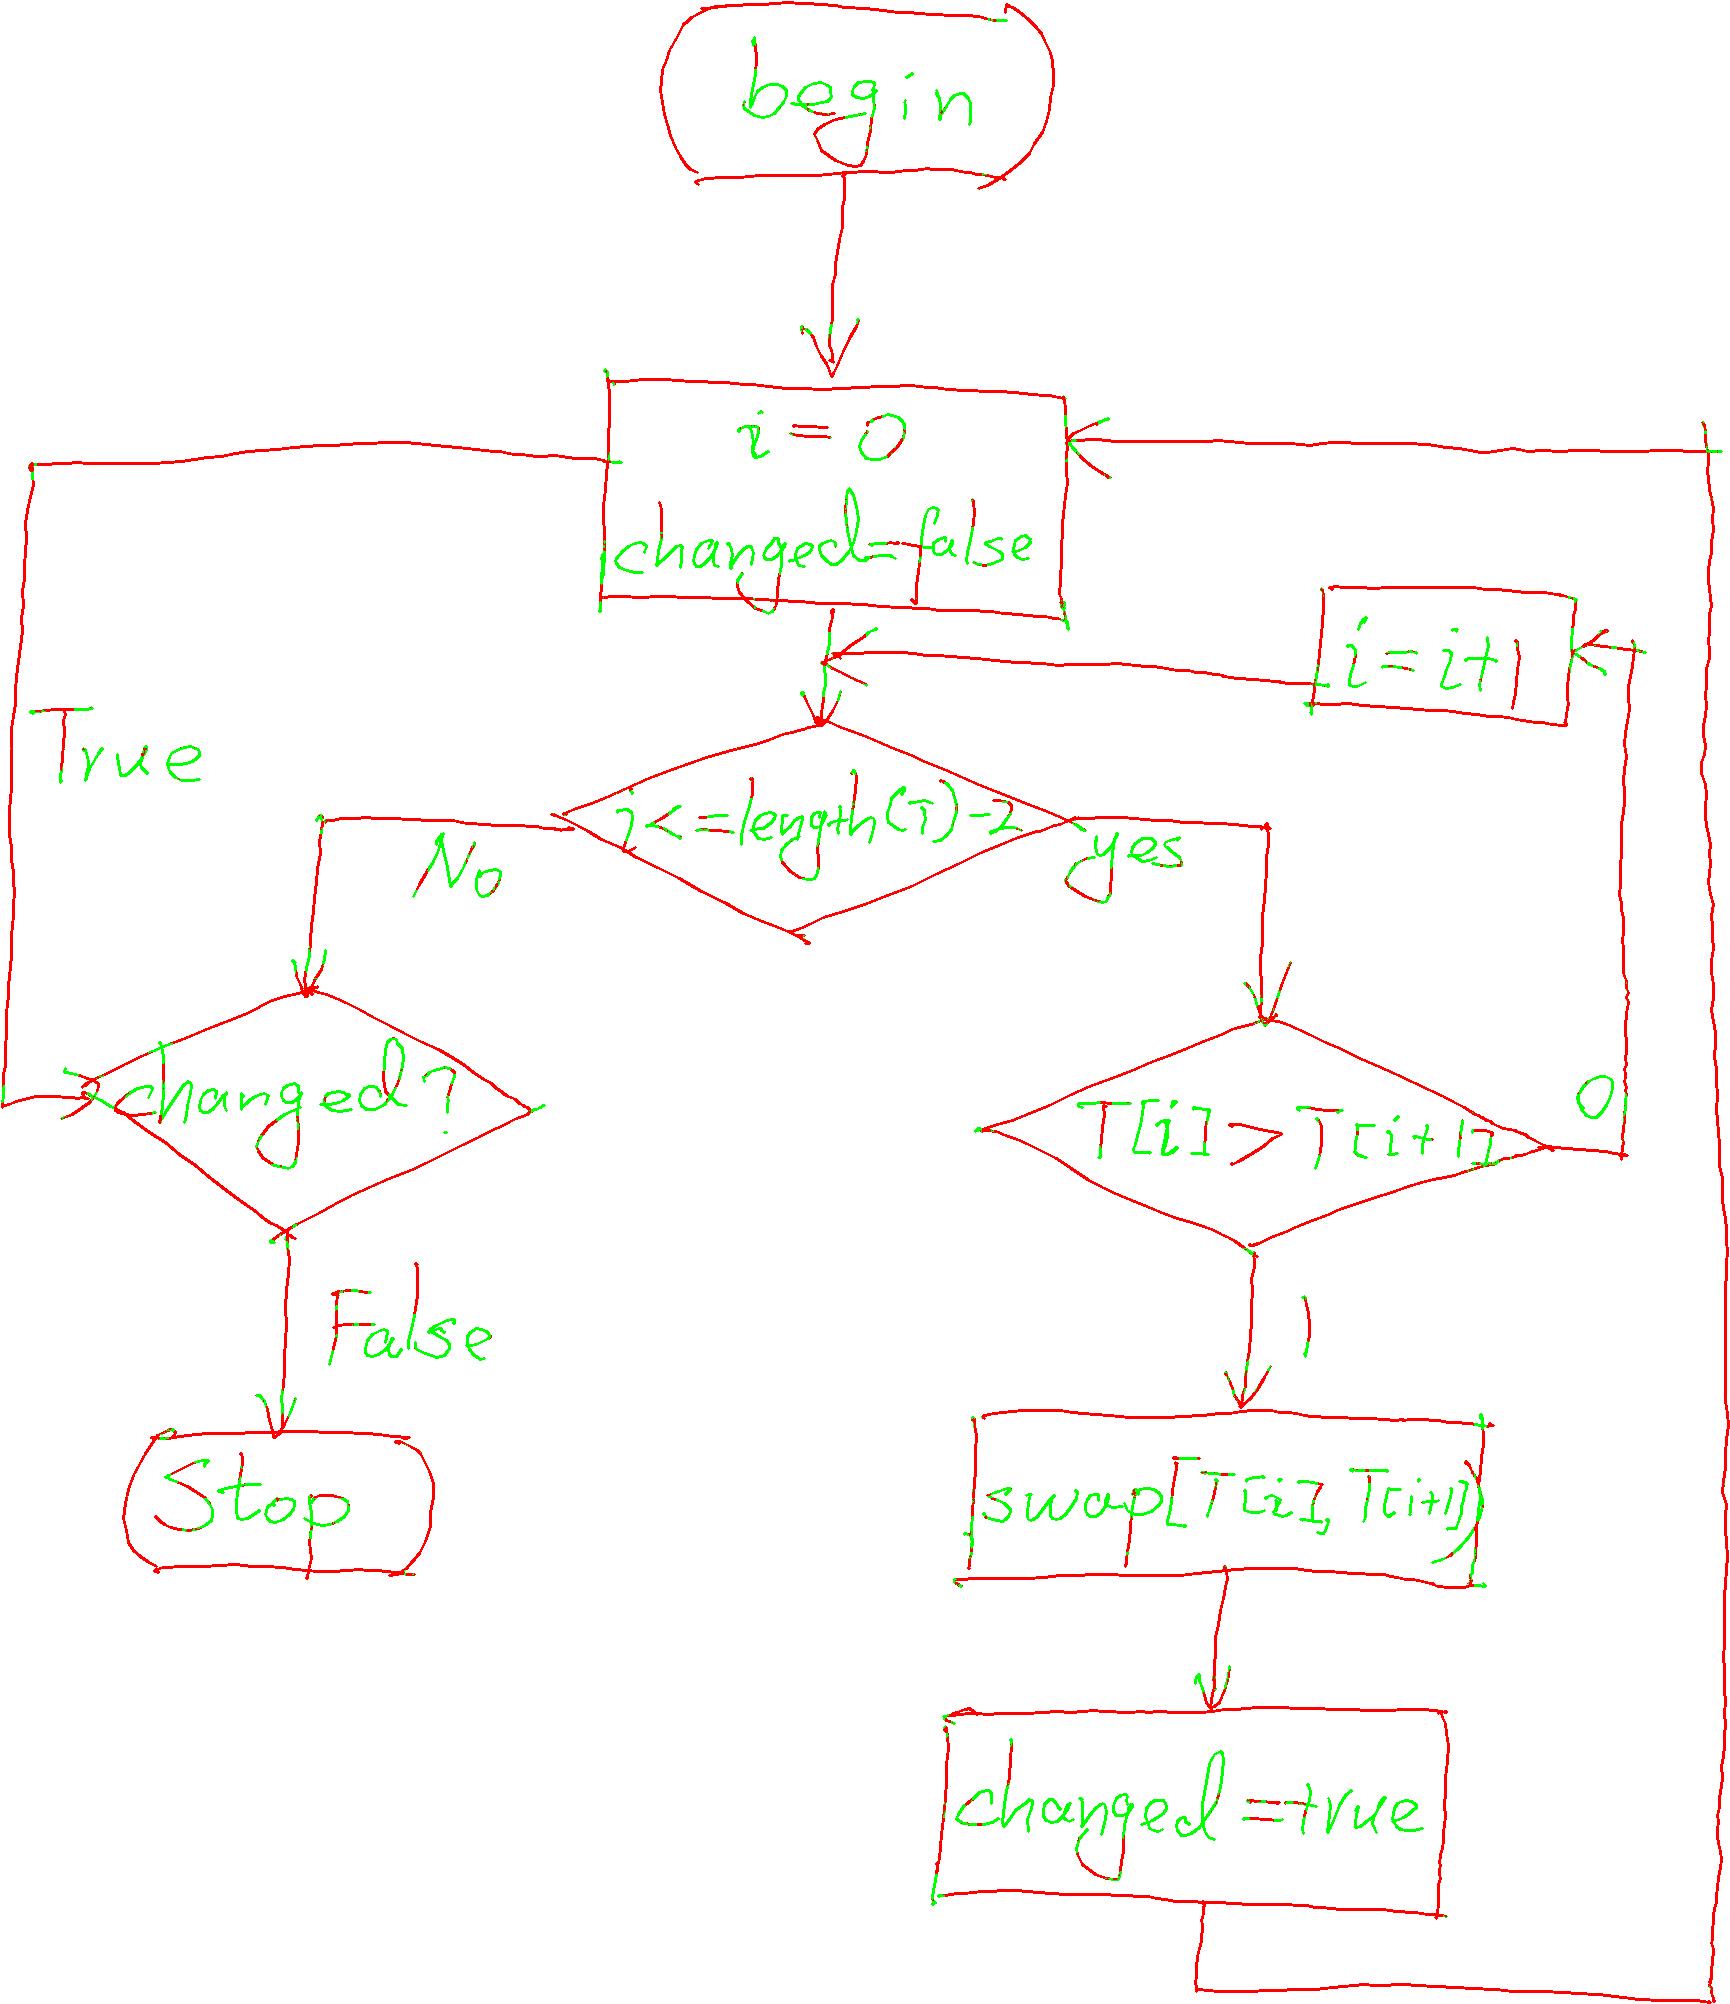 begin
i = 0
changed=false
i = i+1
True
i<=length(T)-2
No
yes
changed?
T[i] > T[i+1]
0
False
1
Stop
swap[T[i], T[i+1])
changed =true